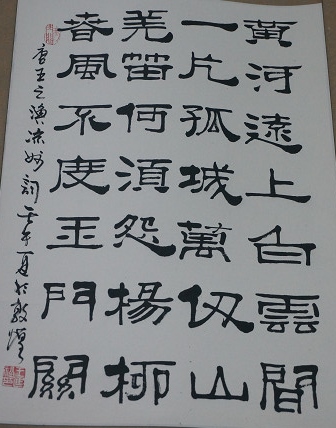 黄河遠上白雲間
一片孤城萬仞山
羌笛何湏怨楊柳
春風不度玉門關
唐王之渙凉州詞壬午夏於敦煌